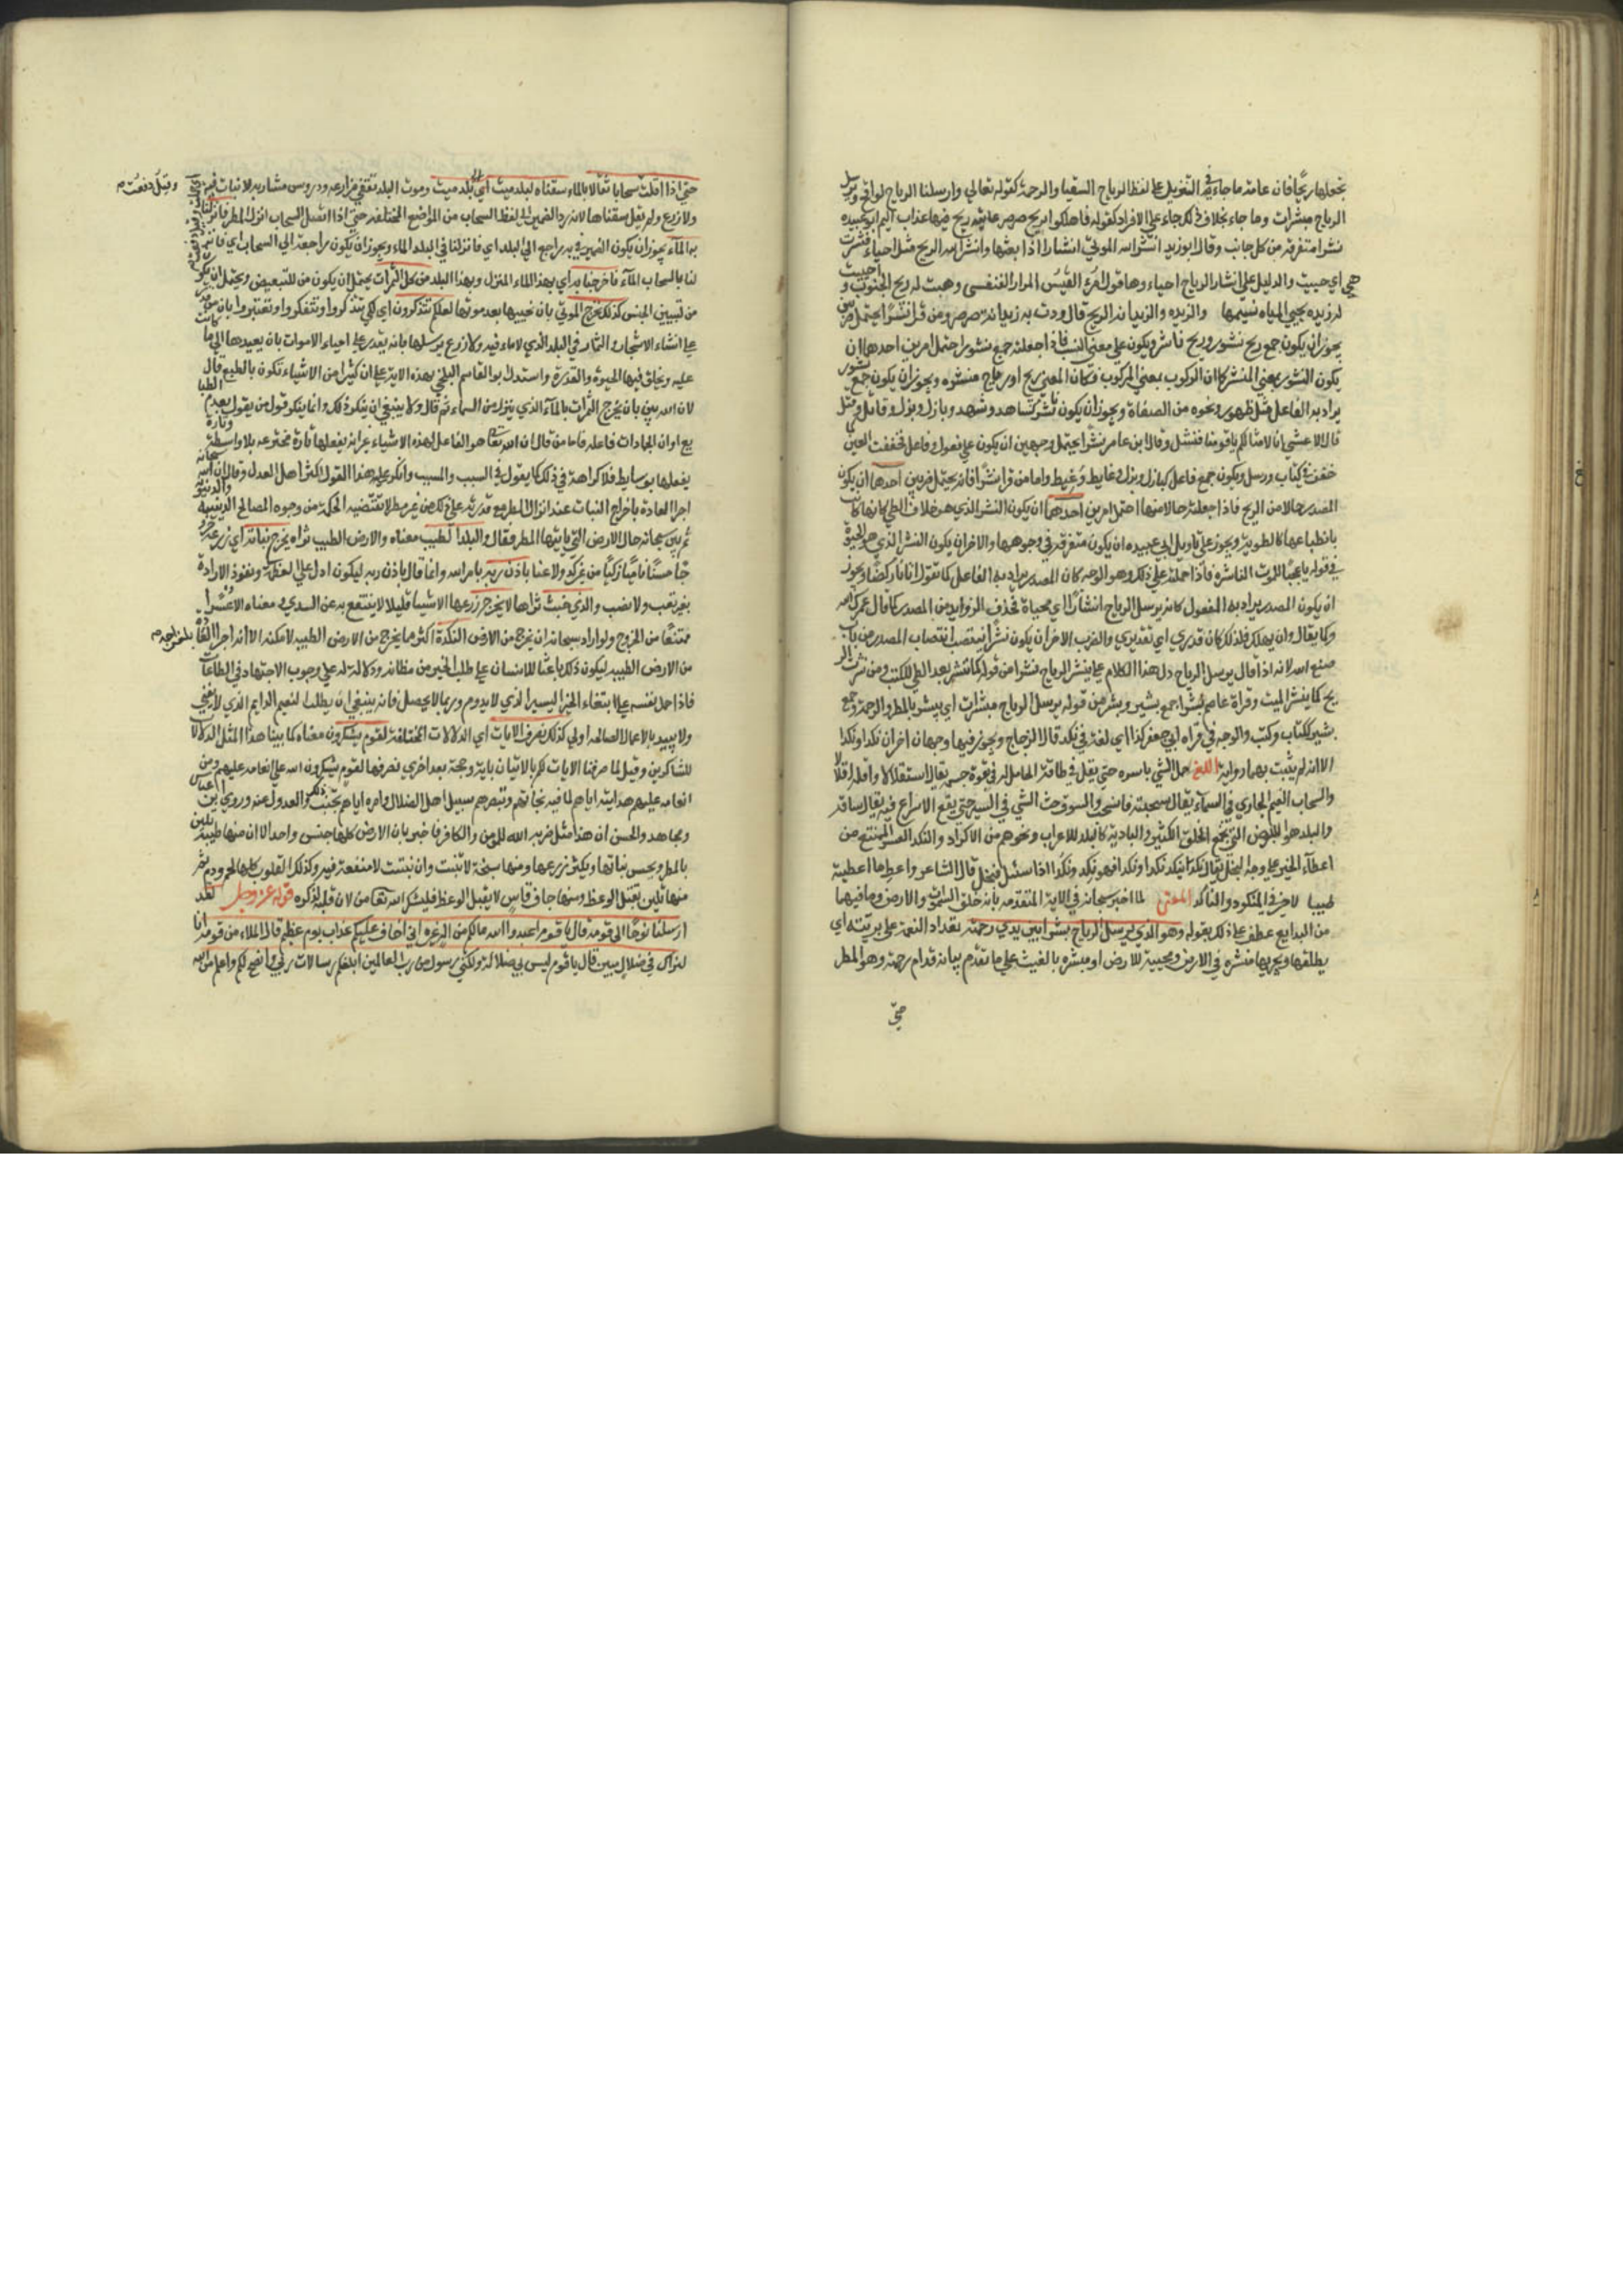 تجعلها ريحًا فان عامة ما جاء في التنزيل على لفظ الرياح السقيا والرحمة كقوله تعالى وارسلنا الرياح لواقح ويرسل
الرياح مبشرات وما جاء بخلاف ذلك جاء على الافراد كقوله فاهلكوا بريح صرصر عاتية ريح فيها عذاب اليم ابو عبيده
نشرا متفرقة من كل جانب وقال ابو زيد انشر الله الموتى انشارا اذا بعثها وانشر الله الريح مثل احياء فنشرت
هي اي حييت والدليل على انشار الرياح احياء وها قول المرار الفقعسي وهبت له ريح الجنوب و احييت
له ريده يحيي المياه نسيمها والريده والريدانه الريح قال ودت به ريدانة صرصر ومن قرا نشرًا يحتمل ضربين
يجوز ان يكون جمع ريح نشور وريح ناشر ويكون على معنى النسب فاذا جعلته جمع نشور احتمل امرين احدهما ان
يكون النشور بمعنى المنشر كما ان الركوب بمعنى المركوب فكان المعنى ريح او رياح منشره ويجوز ان يكون جمع نشور
يراد به الفاعل مثل طهور ونحوه من الصفات ويجوز ان يكون نشر كشاهد وشهد وبازل وبزل وقاتل وقتل
قال الاعشى انا لامثالكم يا قومنا قتل وقال ابن عامر نشرا يحتمل وجهين ان يكون على فعول وفاعل فخففت العين كما
خففت في كتاب ورسل ويكون جمع فاعل كبازل وبزل وغايط وغيط واما من قرا نشرًا فانه يحتمل ضربين احدها ان يكون
المصدر حالا من الريح فاذا جعلته حالا منها احتمل امرين احدهما ان يكون النشر الذي هو خلاف الطي كانها كانت
بانطباعها كالمطوية ويجوز على تاويل ابي عبيده ان يكون متفرقة في وجوهها والاخر ان يكون النشر الذي هو الحيوة
في قوله يا عجبًا للميت الناشره فاذا حملته على ذلك وهو الوجه كان المصدر يراد به الفاعل كما تقول اتانا ركضًا ويجوز
ان يكون المصدر يراد به المفعول كانه يرسل الرياح انشارًا اي محياة فحذف الزوايد من المصدر كما قال عمرك الله
وكما يقال وان يهلك فذلك كان قدري اي تقديري والضرب الاخر ان يكون نشرًا ينتصب انتصاب المصدر من باب
صنع الله لانه اذا قال يرسل الرياح دل هذا الكلام على ينشر الرياح نشرا من قولك كما تنشر بعد الطي الكتب ومن نشرت الر
يح كما ينشر الميت وقراة عاصم بُشرا جمع بشير وبشر من قوله يرسل الرياح مبشرات اي يبشر بالمطر والرحمة وجمع
بشير ككتاب وكتب والوجه في قراه ابي جعفر نكدا اي لغة في نكد قال الزجاج ويجوز فيها وجهان اخران نكدا ونكدا
الا انه لم يثبت بهما رواية اللغة حمل الشي باسره حتى يقل في طاقة الحامل له في قوة جسمه يقال استقلالا واقله اقلالا
والسحاب الغيم الجاري في السماء يقال سحبته فانسحب والسوق حث الشي في السير حتى يقع الاسراع فيه يقال ساقه
والبلد هو الارض التي تجمع الخلق الكثير والبادية كالبلد للاعراب ونحوهم من الاكراد والنكد العسر الممتنع من
اعطاء الخير على وجه البخل يقال نكد ينكد نكدا ونكدا فهو نكد ونكد اذا سئل فبخل قال الشاعر واعط ما اعطيته
طيبا لا خير في المنكود والناكد المعنى لما اخبر سبحانه في الاية المتقدمه بانه خلق السموات والارض وما فيهما
من البدايع عطف على ذلك بقوله وهو الذي يرسل الرياح بشرا بين يدي رحمته تعداد النعمة على بريته اي
يطلقها ويجريها منتشره في الارض ومحيية للارض او مبشره بالغيث على ما تقدم بيانه قدام رحمة وهو المطر
حتى
حتى اذا اقلت سحابا ثقالا بالماء سقناه لبلد ميت اي الى بلد ميت وموت البلد تعفي مزارعه ودروس مشاربه لا نبات فيه
وقيل دفعت
ولا زرع ولم يقل سقناها لانه رد الضمير الى لفظ السحاب من المواضع المختلفه حتى اذا اتصل السحاب انزل المطر فانزلنا
به الماء يجوز ان يكون الضمير في به راجع الى البلد اي فانزلنا في البلد الماء ويجوز ان يكون راجعة الى السحاب اي فانز
لنا بالسحاب الماء فاخرجنا به اي بهذا الماء المنزل وبهذا البلد من كل الثمرات يحتمل ان يكون من للتبعيض ويحتمل ان يكون
من لتبيين الجنس كذلك نخرج الموتى بان نحييها بعد موتها لعلكم تذكرون اي لكي تتذكروا وتتفكروا وتعتبروا بان من قدر
على انشاء الاشجار والثمار في البلد الذي لا ماء فيه ولا زرع بريح يرسلها بانه يقدر على احياء الاموات بان يعيدها الى ما كانت
عليه ويخلق فيها الحيوة والقدرة واستدل ابو القاسم البلخي بهذه الاية على ان كثيرا من الاشياء تكون بالطبع قال
لان الله بين بان يخرج الثمرات بالماء الذي ينزل من السماء ثم قال ولا ينبغي ان ينكر ذلك وانما ينكر قول من يقول بقدم الطبا
يع او ان الجمادات فاعله فاما من قال ان الله تعالى هو الفاعل لهذه الاشياء غير انه يفعلها تارة مخترعه بلا واسطة وتارة
يفعلها بوسايط فلا كراهة في ذلك كما يقول في السبب والمسبب وانكر عليه هذا القول اكثر اهل العدل وقال ان الله سبحانه
اجرا العادة باخراج النبات عند انزال المطر مع قدرته على ذلك من غير مطر لما تقتضيه الحكمة من وجوه المصالح الدينية والدنيوية
ثم بين سبحانه حال الارض التي ياتيها المطر فقال والبلد الطيب معناه والارض الطيب ثراه يخرج نباته اي زرعه خرو
جًا حسنًا ناميًا زكيًا من غير كد ولا عنا باذن ربه بامر الله وانما قال باذن ربه ليكون ادل على العظمة ونفوذ الارادة
بغير تعب ولا نصب والذي خبث ثراها لا يخرج زرعها الا شيا قليلا لا ينتفع به عن السدي ومعناه الا عسرا
ممتنعًا من الخروج ولو اراد سبحانه ان يخرج من الارض النكدة اكثر مما يخرج من الارض الطيبه لامكنه الا انه اجرا العادة
من الارض الطيبه ليكون ذلك باعثا للانسان على طلب الخير من مظانه ودلالة له على وجوب الاجتهاد في الطاعات
فاذا حمل نفسه على ابتغاء الخير اليسير الذي لا يدوم وربما لا يحصل فانه ينبغي ان يطلب النعيم الدايم الذي لا يفنى
ولا يبيد بالاعمال الصالحه اولى كذلك نصرف الايات اي الدلالات المختلفة لقوم يشكرون معناه كما بينا هذا المثل الدلالات
للشاكرين وقيل لما صرفنا الايات لكم بالاتيان باية وحجة بعد اخرى نصرفها لقوم يشكرون الله على انعامه عليهم ومن
انعامه عليهم هدايته اياهم لما فيه نجاتهم وتبصرهم سبيل اهل الضلال وامره اياهم بتجنب ذلك والعدول عنه وروي عن ابن عباس
ومجاهد والحسن ان هذا مثل ضربه الله للمومن والكافر فاخبر بان الارض كلها جنس واحد الا ان منها طيبة تلين
بالمطر ويحسن نباتها ويكثر زرعها ومنها سبخة لا تنبت وان نبتت لا منفعة فيه وكذلك القلوب كلها لحم ودم ثم
منها تلين تقبل الوعظ ومنها جاف قاس لا يقبل الوعظ فليشكر الله تعالى من لان قلبه لذكره قوله عز وجل لقد
ارسلنا نوحًا الى قومه فقال يا قوم اعبدوا الله ما لكم من اله غيره اني اخاف عليكم عذاب يوم عظيم قال الملاء من قومه انا
لنراك في ضلال مبين قال يا قوم ليس بي ضلالة ولكني رسول من رب العالمين ابلغكم رسالات ربي وانصح لكم واعلم من الله